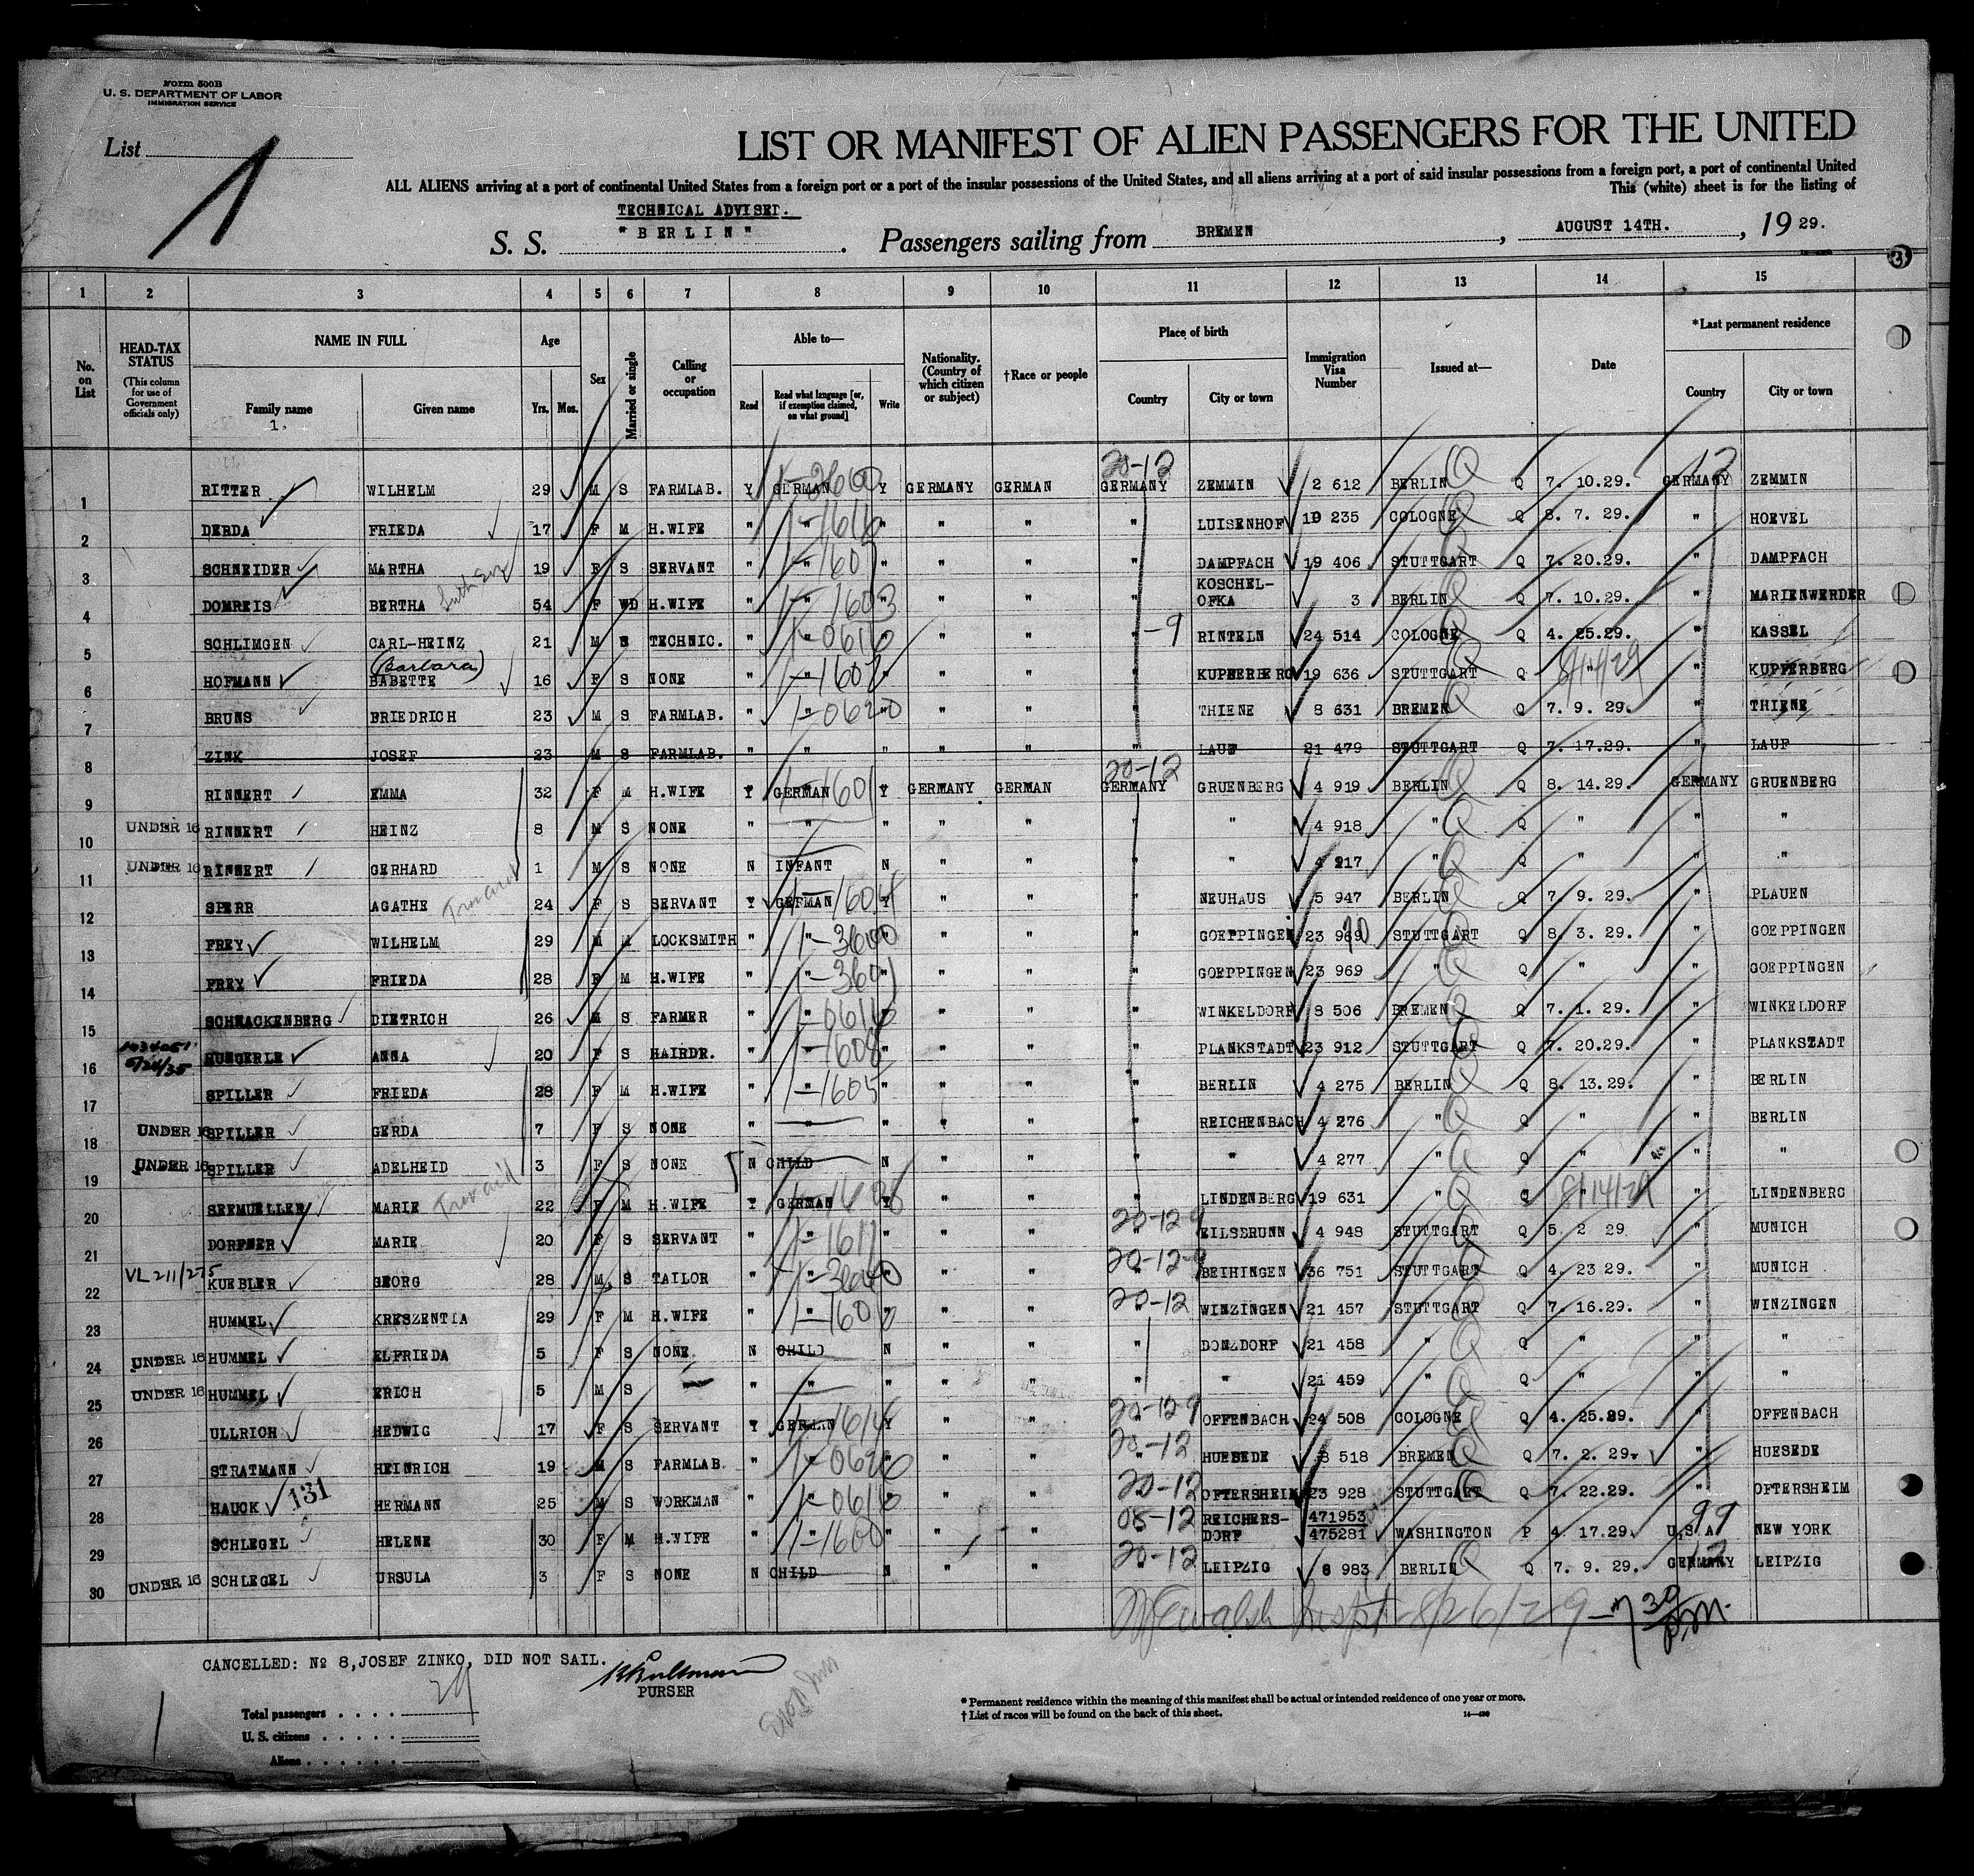 Form 500B
U. S. DEPARTMENT OF LABOR
IMMIGRATION SERVICE
List 1
LIST OR MANIFEST OF ALIEN PASSENGERS FOR THE UNITED
ALL ALIENS arriving at a port of continental United States from a foreign port or a port of the insular possessions of the United States, and all aliens arriving at a port of said insular possessions from a foreign port, a port of continental United
This (white) sheet is for the listing of
TECHNICAL ADVISED.
S. S. "BERLIN". Passengers sailing from BREMEN, AUGUST 14TH., 19 29.
1 2 3 4 5 6 7 8 9 10 11 12 13 14 15
No. on List HEAD-TAX STATUS (This column for use of Government officials only) NAME IN FULL Family name Given name Age Yrs. Mos. Sex Married or single Calling or occupation Able to— Read Read what language [or, if exemption claimed, on what ground] Write Nationality. (Country of which citizen or subject) †Race or people Place of birth Country City or town Immigration Visa Number Issued at— Date *Last permanent residence Country City or town
1.
20-12 12
1 RITTER WILHELM 29 M S FARMLAB. Y GERMAN Y GERMANY GERMAN GERMANY ZEMMIN 2 612 BERLIN Q 7. 10.29. GERMANY ZEMMIN
2 DERDA FRIEDA 17 F M H.WIFE " " 1-1616 " " " " LUISENHOF 19 235 COLOGNE Q 8. 7. 29. " HOEVEL
3 SCHNEIDER MARTHA 19 F S SERVANT " " " " " " DAMPFACH 19 406 STUTTGART Q 7. 20.29. " DAMPFACH
4 DOMREIS BERTHA 54 F WD H.WIFE " " 1-1603 " " " " KOSCHEL-OFKA 3 BERLIN Q 7. 10.29. " MARIENWERDER
5 SCHLIMGEN CARL-HEINZ 21 M S TECHNIC. " " 1-0616 " " " " -9 RINTELN 24 514 COLOGNE Q 4. 25.29. " KASSEL
6 HOFMANN (Barbara) BABETTE 16 F S NONE " " 1-1602 " " " " KUPFERBERG 19 636 STUTTGART Q " 8/14/29 " KUPFERBERG
7 BRUNS FRIEDRICH 23 M S FARMLAB. " " 1-0620 " " " " THIENE 8 631 BREMEN Q 7. 9. 29. " THIENE
8 ZINK JOSEF 23 M S FARMLAB. " " " " " " LAUF 21 479 STUTTGART Q 7. 17.29. " LAUF
20-12
9 RINNERT EMMA 32 F M H.WIFE Y GERMAN 1-1601 Y GERMANY GERMAN GERMANY GRUENBERG 4 919 BERLIN Q 8. 14.29. GERMANY GRUENBERG
10 UNDER 16 RINNERT HEINZ 8 M S NONE " " " " " " " 4 918 " Q " " "
11 UNDER 16 RINNERT GERHARD 1 M S NONE N INFANT N " " " " 4 917 " Q " " "
12 SPERR AGATHE 24 F S SERVANT Y GERMAN 1-1604 Y " " " NEUHAUS 5 947 BERLIN Q 7. 9. 29. " PLAUEN
13 FREY WILHELM 29 M M LOCKSMITH " " 1-3600 " " " " GOEPPINGEN 23 969 70 STUTTGART Q 8. 3. 29. " GOEPPINGEN
14 FREY FRIEDA 28 F M H.WIFE " " 1-3601 " " " " GOEPPINGEN 23 969 " Q " " GOEPPINGEN
15 SCHNACKENBERG DIETRICH 26 M S FARMER " " 1-0616 " " " " WINKELDORF 8 506 BREMEN Q 7. 1. 29. " WINKELDORF
16 5/24/35 HUNGERLE ANNA 20 F S HAIRDR. " " 1-1608 " " " " PLANKSTADT 23 912 STUTTGART Q 7. 20.29. " PLANKSTADT
17 SPILLER FRIEDA 28 F M H.WIFE " " 1-1605 " " " " BERLIN 4 275 BERLIN Q 8. 13.29. " BERLIN
18 UNDER 16 SPILLER GERDA 7 F S NONE " " " " " REICHENBACH 4 276 " Q " " BERLIN
19 UNDER 16 SPILLER ADELHEID 3 F S NONE N CHILD N " " " " 4 277 " Q " " "
20 SEEMUELLER MARIE 22 F M H.WIFE Y GERMAN Y " " " LINDENBERG 19 631 " Q 8/14/29 " LINDENBERG
21 DORFNER MARIE 20 F S SERVANT " " 1-1611 " " " 20-12-9 EILSBRUNN 4 948 STUTTGART Q 5. 2 29 " MUNICH
22 VL 211/275 KUEBLER GEORG 28 M S TAILOR " " 1-3640 " " " 20-12-9 BEIHINGEN 36 751 STUTTGART Q 4. 23 29. " MUNICH
23 HUMMEL KRESZENTIA 29 F M H.WIFE " " 1-1600 " " " 20-12 WINZINGEN 21 457 STUTTGART Q 7. 16.29. " WINZINGEN
24 UNDER 16 HUMMEL ELFRIEDA 5 F S NONE N CHILD N " " " DONZDORF 21 458 " Q " " "
25 UNDER 16 HUMMEL ERICH 5 M S " " " " " " " 21 459 " Q " " "
26 ULLRICH HEDWIG 17 F S SERVANT Y GERMAN 1-1614 Y " " 20-12-9 OFFENBACH 24 508 COLOGNE Q 4. 25.29. " OFFENBACH
27 STRATMANN HEINRICH 19 M S FARMLAB. " " 1-0620 " " " 20-12 HUESEDE 8 518 BREMEN Q 7. 2. 29. " HUESEDE
28 HAUCK 131 HERMANN 25 M S WORKMAN " " 1-0610 " " " 20-12 OFTERSHEIM 23 928 STUTTGART Q 7. 22.29. " OFTERSHEIM
29 SCHLEGEL HELENE 30 F M H.WIFE " " 1-1600 " " " 08-12 REICHERS-DORF 471953 475281 WASHINGTON P 4. 17.29. U.S.A. 99 NEW YORK
30 UNDER 16 SCHLEGEL URSULA 3 F S NONE N CHILD N " " 20-12 LEIPZIG 8 983 BERLIN Q 7. 9. 29. GERMANY 12 LEIPZIG
Walsh Inspt 8/26/29 - 7 30 P.M.
CANCELLED: No 8, JOSEF ZINKO, DID NOT SAIL.
PURSER
Total passengers 29
U. S. citizens
Aliens
* Permanent residence within the meaning of this manifest shall be actual or intended residence of one year or more.
† List of races will be found on the back of this sheet.